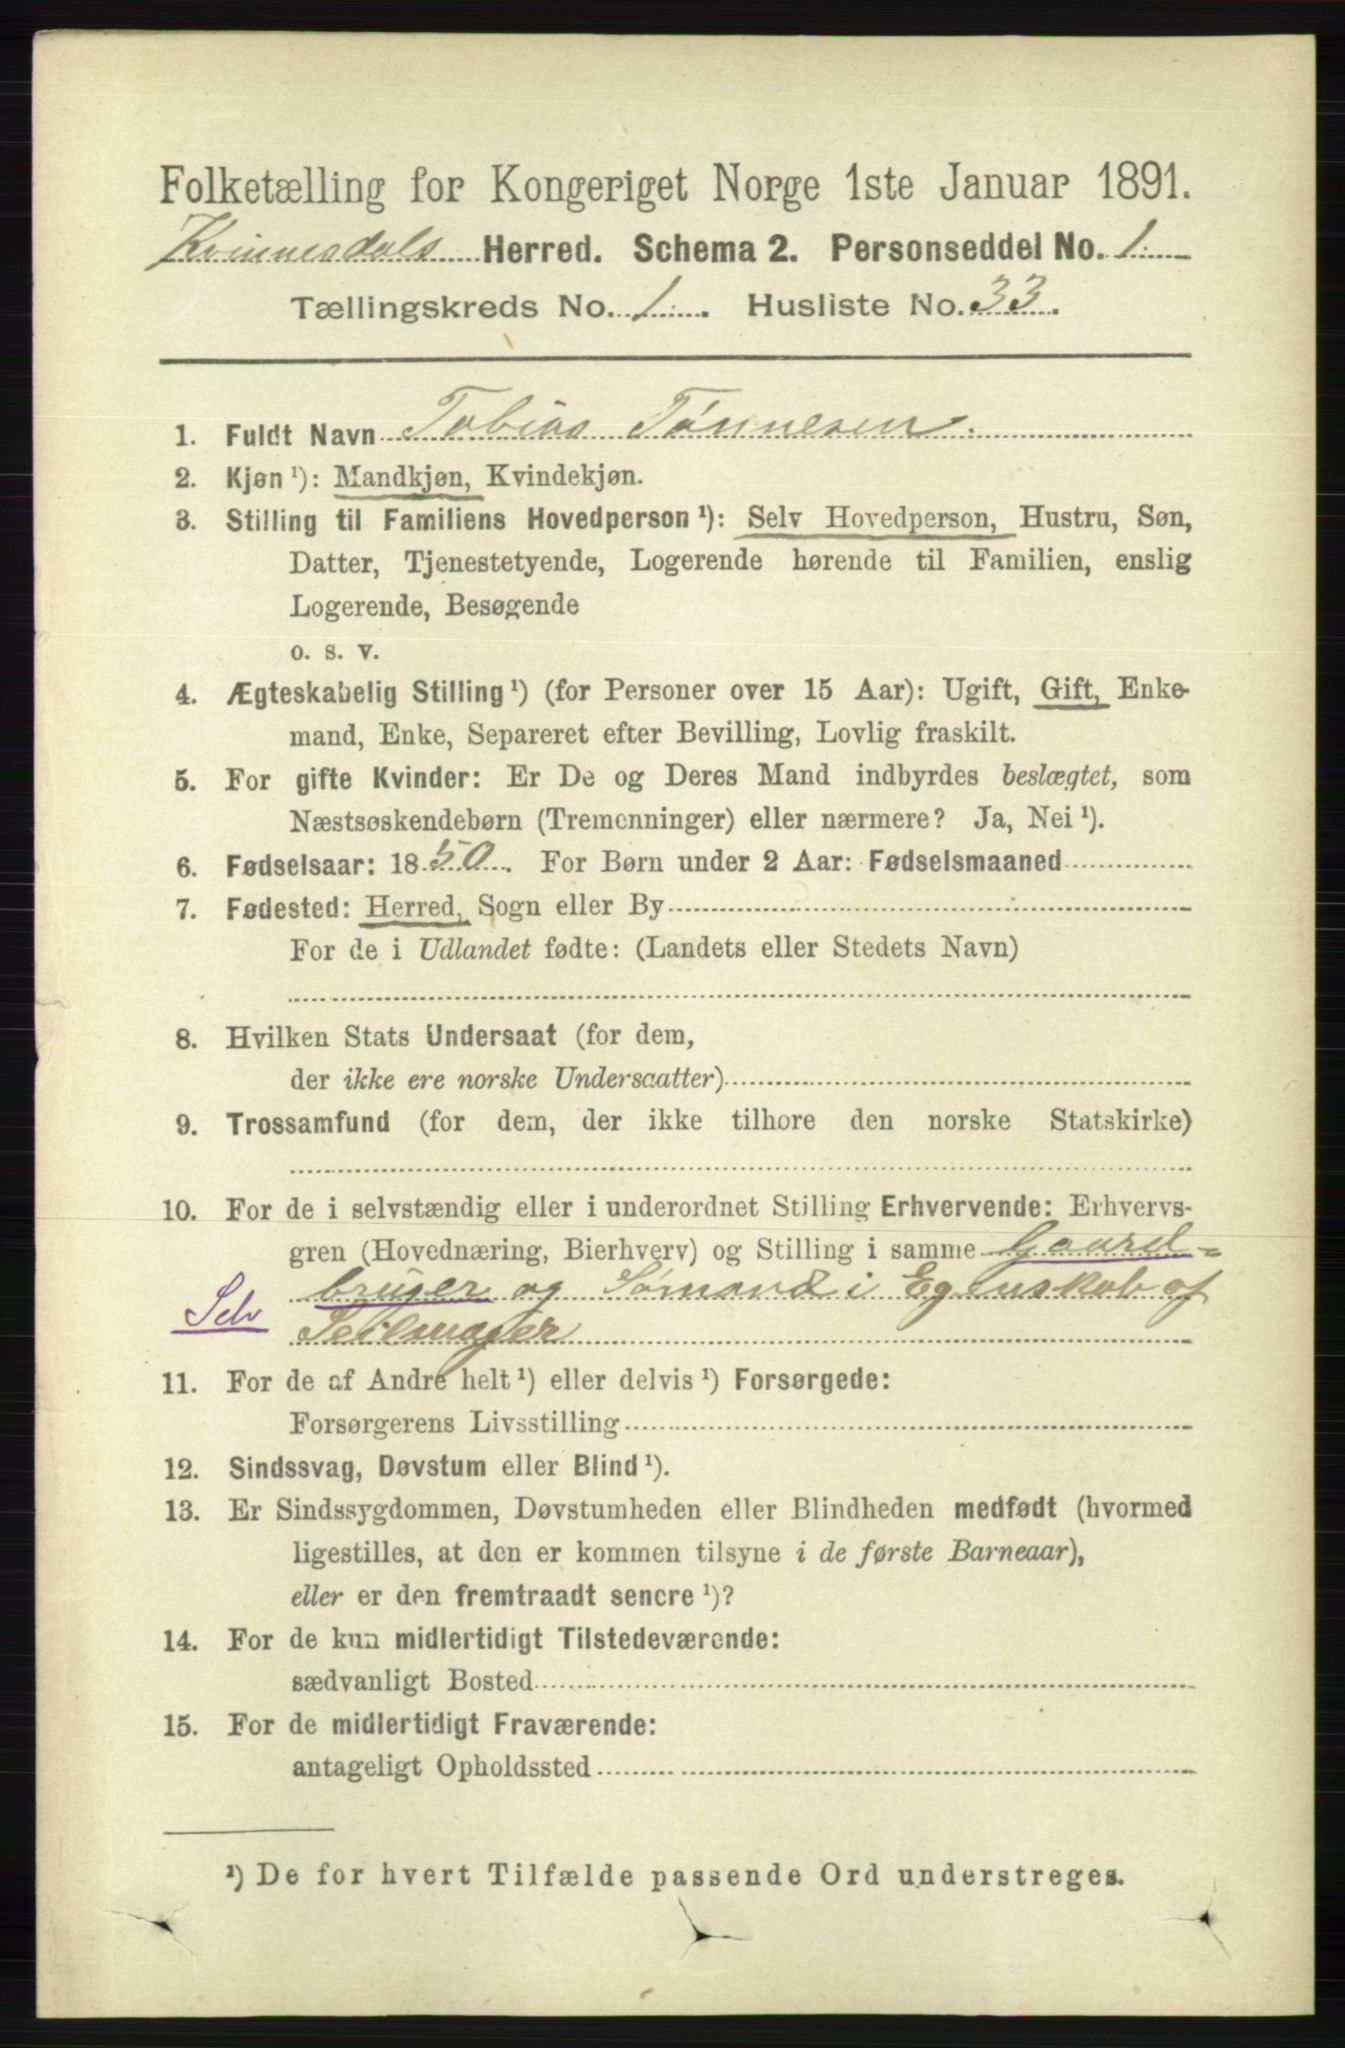 Folketælling for Kongeriget Norge 1ste Januar 1891.
Kvinnesdals Herred. Schema 2. Personseddel No. 1.
Tællingskreds No. 1. Husliste No. 33.
1. Fuldt Navn Tobias Tønnesen.
2. Kjøn ¹): Mandkjøn, Kvindekjøn.
3. Stilling til Familiens Hovedperson ¹): Selv Hovedperson, Hustru, Søn,
Datter, Tjenestetyende, Logerende hørende til Familien, enslig
Logerende, Besøgende
o. s. v.
4. Ægteskabelig Stilling ¹) (for Personer over 15 Aar): Ugift, Gift, Enke-
mand, Enke, Separeret efter Bevilling, Lovlig fraskilt.
5. For gifte Kvinder: Er De og Deres Mand indbyrdes beslægtet, som
Næstsøskendebørn (Tremenninger) eller nærmere? Ja, Nei ¹).
6. Fødselsaar: 1850. For Børn under 2 Aar: Fødselsmaaned
7. Fødested: Herred, Sogn eller By
For de i Udlandet fødte: (Landets eller Stedets Navn)
8. Hvilken Stats Undersaat (for dem,
der ikke ere norske Undersaatter)
9. Trossamfund (for dem, der ikke tilhøre den norske Statskirke)
10. For de i selvstændig eller i underordnet Stilling Erhvervende: Erhvervs-
gren (Hovednæring, Bierhverv) og Stilling i samme Gaard-
bruger og Sømand i Egenskab af
Selv Seilmager
11. For de af Andre helt ¹) eller delvis ¹) Forsørgede:
Forsørgerens Livsstilling
12. Sindssvag, Døvstum eller Blind ¹).
13. Er Sindssygdommen, Døvstumheden eller Blindheden medfødt (hvormed
ligestilles, at den er kommen tilsyne i de første Barneaar),
eller er den fremtraadt senere ¹)?
14. For de kun midlertidigt Tilstedeværende:
sædvanligt Bosted
15. For de midlertidigt Fraværende:
antageligt Opholdssted
¹) De for hvert Tilfælde passende Ord understreges.